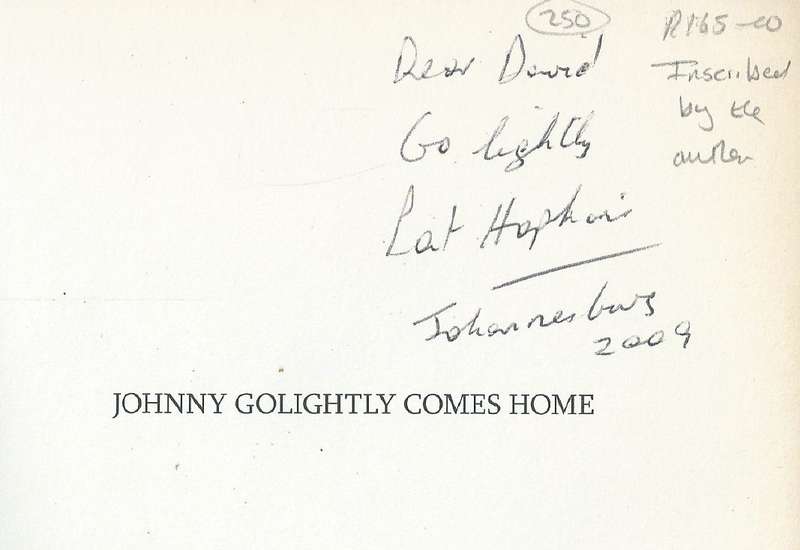 250
Dear David
Go lightly
Pat Hopkins
Johannesburg
2009
R165-00
Inscribed
by the
author
JOHNNY GOLIGHTLY COMES HOME